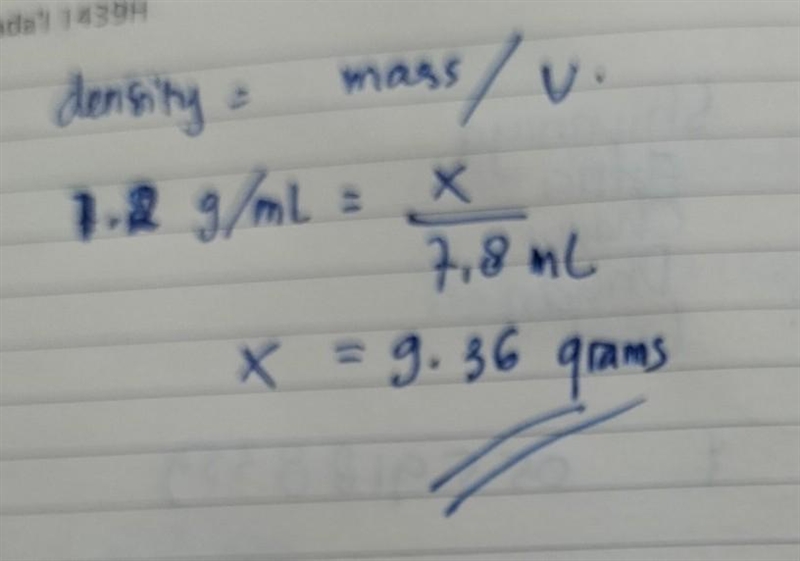 ada'l 1439H
density = mass / V.
1.2 g/ml = x
7,8 ml
x = 9.36 grams